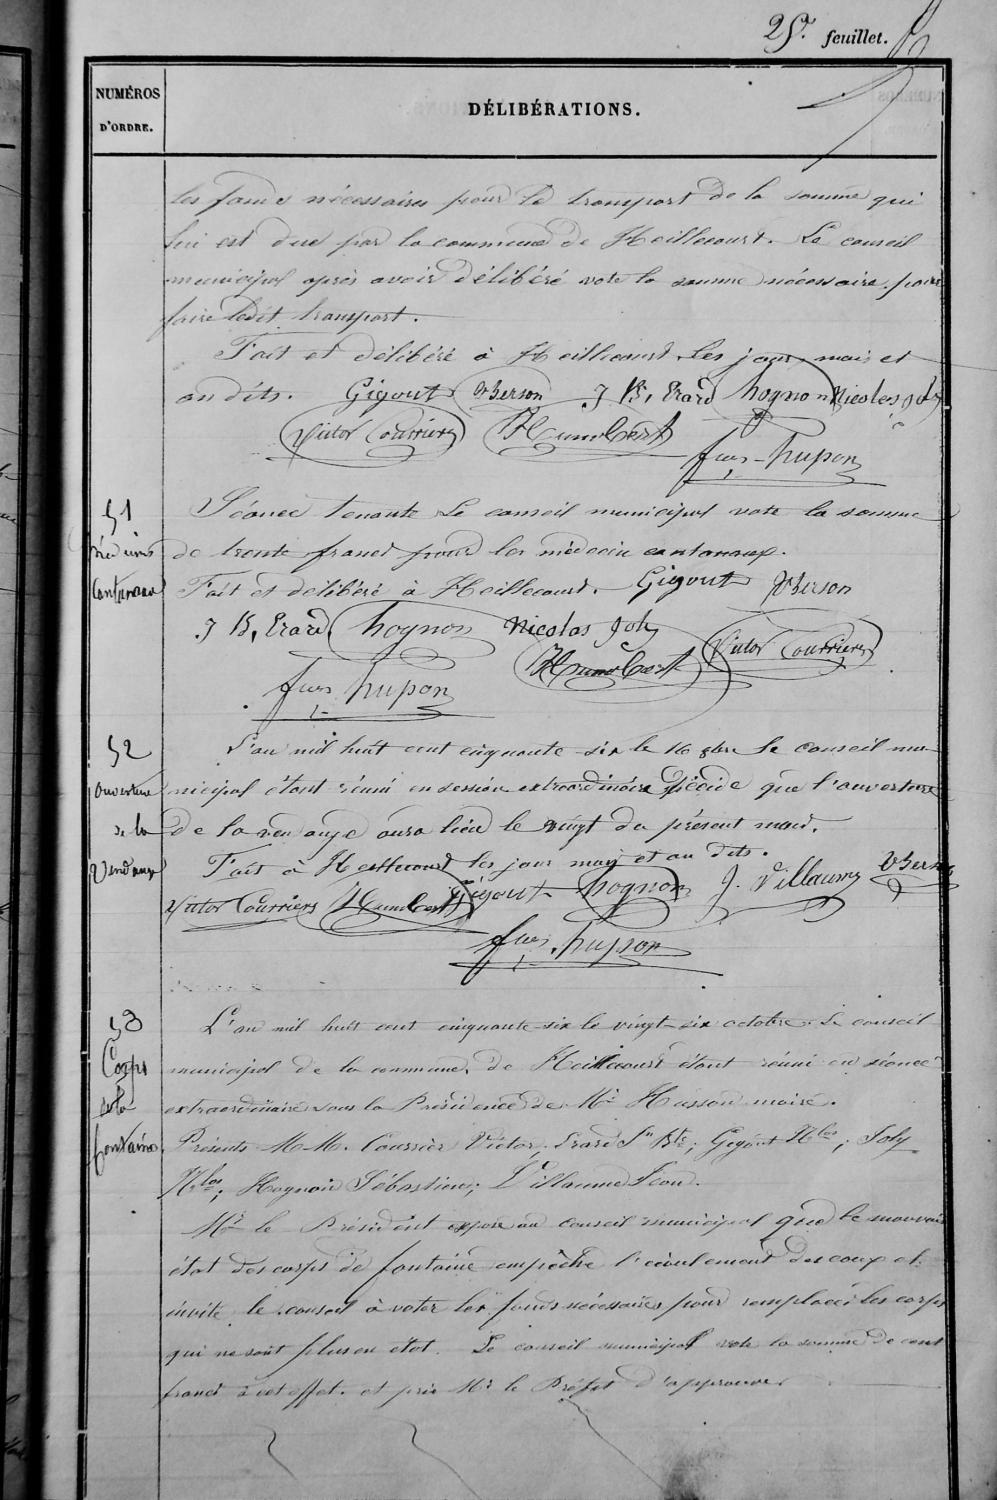 25e feuillet.
NUMÉROS
D'ORDRE.
DÉLIBÉRATIONS.
les fonds nécessaires pour le transport de la somme qui
lui est due par la commune de Heillecourt. Le conseil
municipal après avoir délibéré vote la somme nécessaire pour
faire ledit transport.
Fait et délibéré à Heillecourt les jour, mois et
an dits. Gigout VBerson J B, Erard hognon Nicolas Joly
Victor Courrier Humbert
hupon
51
Séance tenante Le conseil municipal vote la somme
médecins
de trente francs pour les médecin cantonaux.
Cantonaux
Fait et délibéré à Heillecourt. Gigout VBerson
J B, Erard hognon Nicolas Joly
Humbert Victor Courrier
hupon
52
L'an mil huit cent cinquante-six le 16 8bre le conseil mu-
ouverture
nicipal étant réuni en session extraordinaire décide que l'ouverture
de la
de la vendange aura lieu le vingt du présent mois.
Vendange
Fait à Heillecourt les jour mois et an dits.
Victor Courrier Humbert Gigout hognon J. Villaume VBerson
hupon
53
L'an mil huit cent cinquante-six le vingt-six octobre Le conseil
Corps
municipal de la commune de Heillecourt étant réuni en séance
de la
extraordinaire sous la Présidence de Mr Husson maire.
fontaine
Présents M.M. Courrier Victor, Erard Jn Bte; Gigout Nlas; Joly
Nlas; Hognon Sébastien; Villaume Léon.
Mr le Président expose au conseil municipal que le mauvais
état des corps de fontaine empêche l'écoulement des eaux et
invite le conseil à voter les fonds nécessaires pour remplacer les corps
qui ne sont plus en état. Le conseil municipal vote la somme de cent
francs à cet effet. et prie Mr le Préfet d'approuver